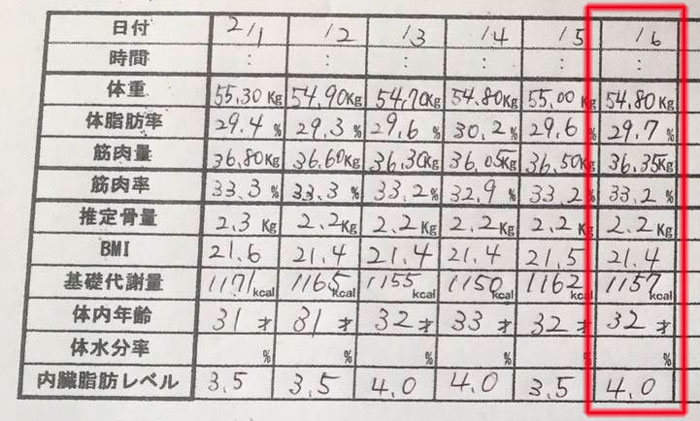 日付 2/1 /2 /3 /4 /5 /6
時間 : : : : : :
体重 55.30Kg 54.90Kg 54.70Kg 54.80Kg 55.00Kg 54.80Kg
体脂肪率 29.4% 29.3% 29.6% 30.2% 29.6% 29.7%
筋肉量 36.80Kg 36.60Kg 36.30Kg 36.05Kg 36.50Kg 36.35Kg
筋肉率 33.3% 33.3% 33.2% 32.9% 33.2% 33.2%
推定骨量 2.3Kg 2.2Kg 2.2Kg 2.2Kg 2.2Kg 2.2Kg
BMI 21.6 21.4 21.4 21.4 21.5 21.4
基礎代謝量 1171kcal 1165kcal 1155kcal 1150kcal 1162kcal 1157kcal
体内年齢 31才 31才 32才 33才 32才 32才
体水分率 % % % % % %
内臓脂肪レベル 3.5 3.5 4.0 4.0 3.5 4.0